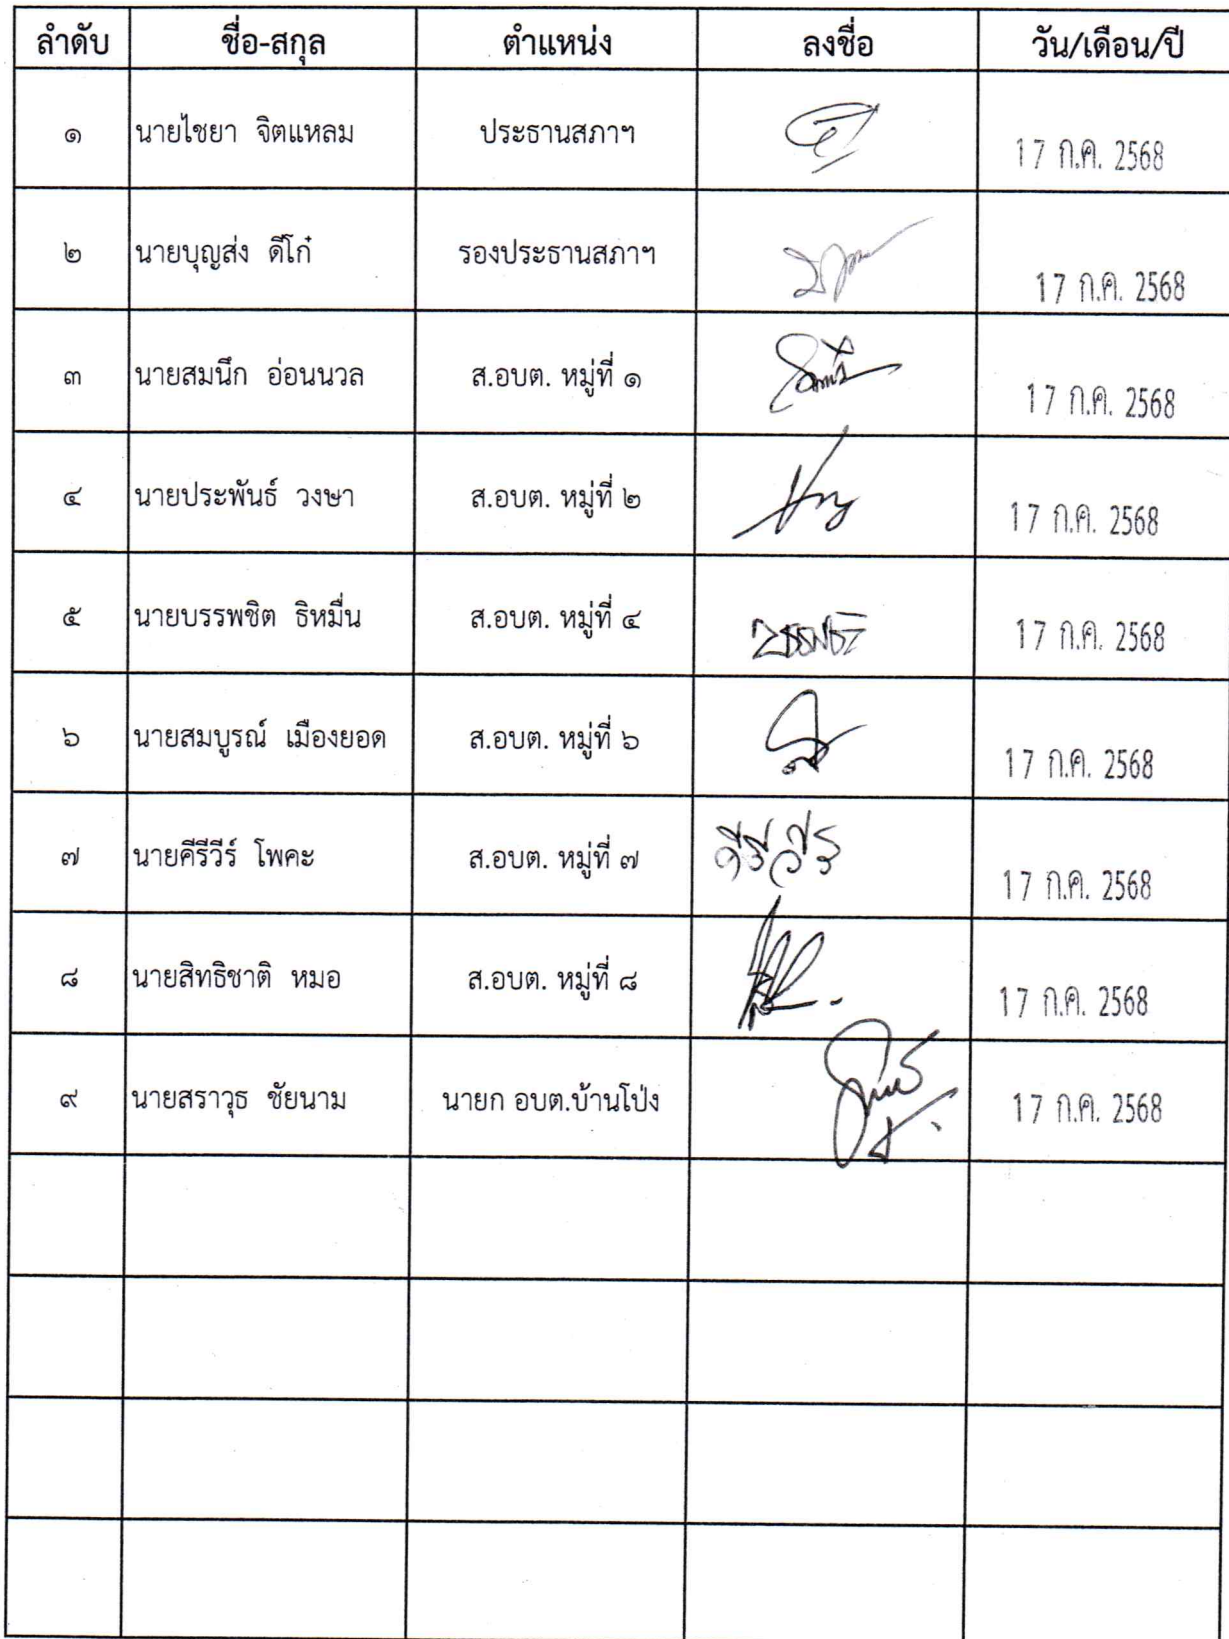 ลำดับ ชื่อ-สกุล ตำแหน่ง ลงชื่อ วัน/เดือน/ปี
๑ นายไชยา จิตแหลม ประธานสภาฯ 17 ก.ค. 2568
๒ นายบุญส่ง ดีโก๋ รองประธานสภาฯ 17 ก.ค. 2568
๓ นายสมนึก อ่อนนวล ส.อบต. หมู่ที่ ๑ 17 ก.ค. 2568
๔ นายประพันธ์ วงษา ส.อบต. หมู่ที่ ๒ 17 ก.ค. 2568
๕ นายบรรพชิต ธิหมื่น ส.อบต. หมู่ที่ ๔ 17 ก.ค. 2568
๖ นายสมบูรณ์ เมืองยอด ส.อบต. หมู่ที่ ๖ 17 ก.ค. 2568
๗ นายคีรีวีร์ โพคะ ส.อบต. หมู่ที่ ๗ คีรีวีร์ 17 ก.ค. 2568
๘ นายสิทธิชาติ หมอ ส.อบต. หมู่ที่ ๘ 17 ก.ค. 2568
๙ นายสราวุธ ชัยนาม นายก อบต.บ้านโป่ง 17 ก.ค. 2568